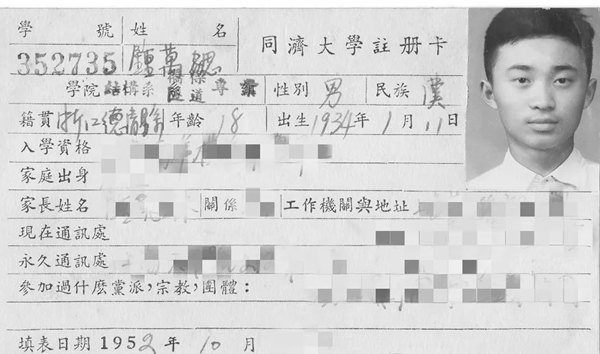 學號 姓名
352735 鍾萬勰 同濟大學註册卡
學院 結構系 橋樑隧道 專業 性別 男 民族 漢
籍貫 浙江德清縣 年齡 18 出生 1934年 1月 11日
入學資格
家庭出身
家長姓名 關係 工作機關與地址
現在通訊處
永久通訊處
參加過什麽黨派,宗教,團體:
填表日期 1952年 10月